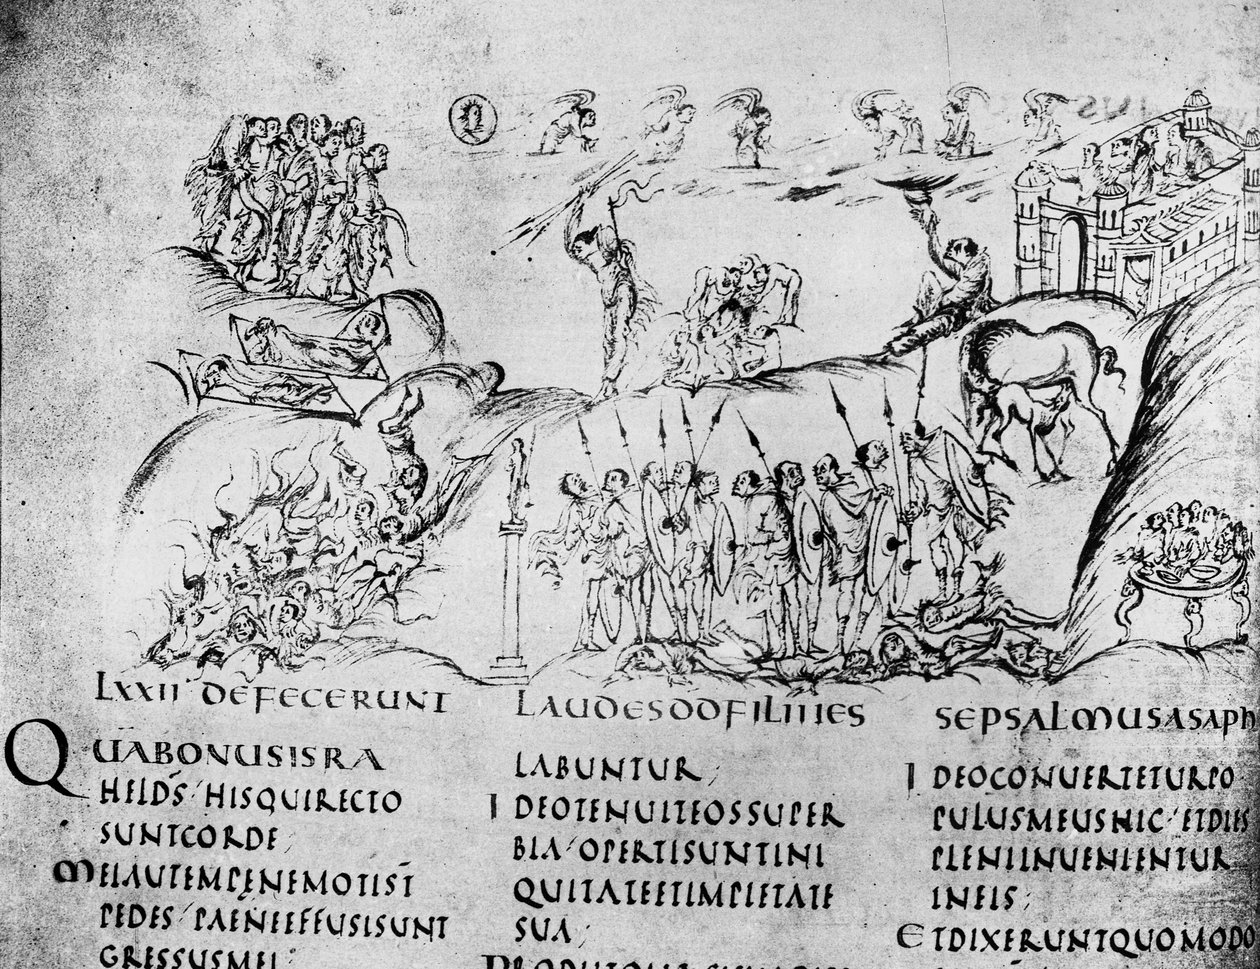 LXXII DEFECERUNT LAUDES DD FILII IES SE PSALMUS ASAPH
QUA BONUS ISRA
HEL D̄S · HIS QUI RECTO
SUNT CORDE;
MEI AUTEM PENE MOTI S̄T
PEDES · PAENE EFFUSI SUNT
GRESSUS MEI;
LABUNTUR;
IDEO TENUIT EOS SUPER
BIA · OPERTI SUNT INI
QUITATE ET IMPIETATE
SUA;
IDEO CONUERTETUR PO
PULUS MEUS HIC · ET DIES
PLENI INUENIENTUR
IN EIS;
ET DIXERUNT QUOMODO